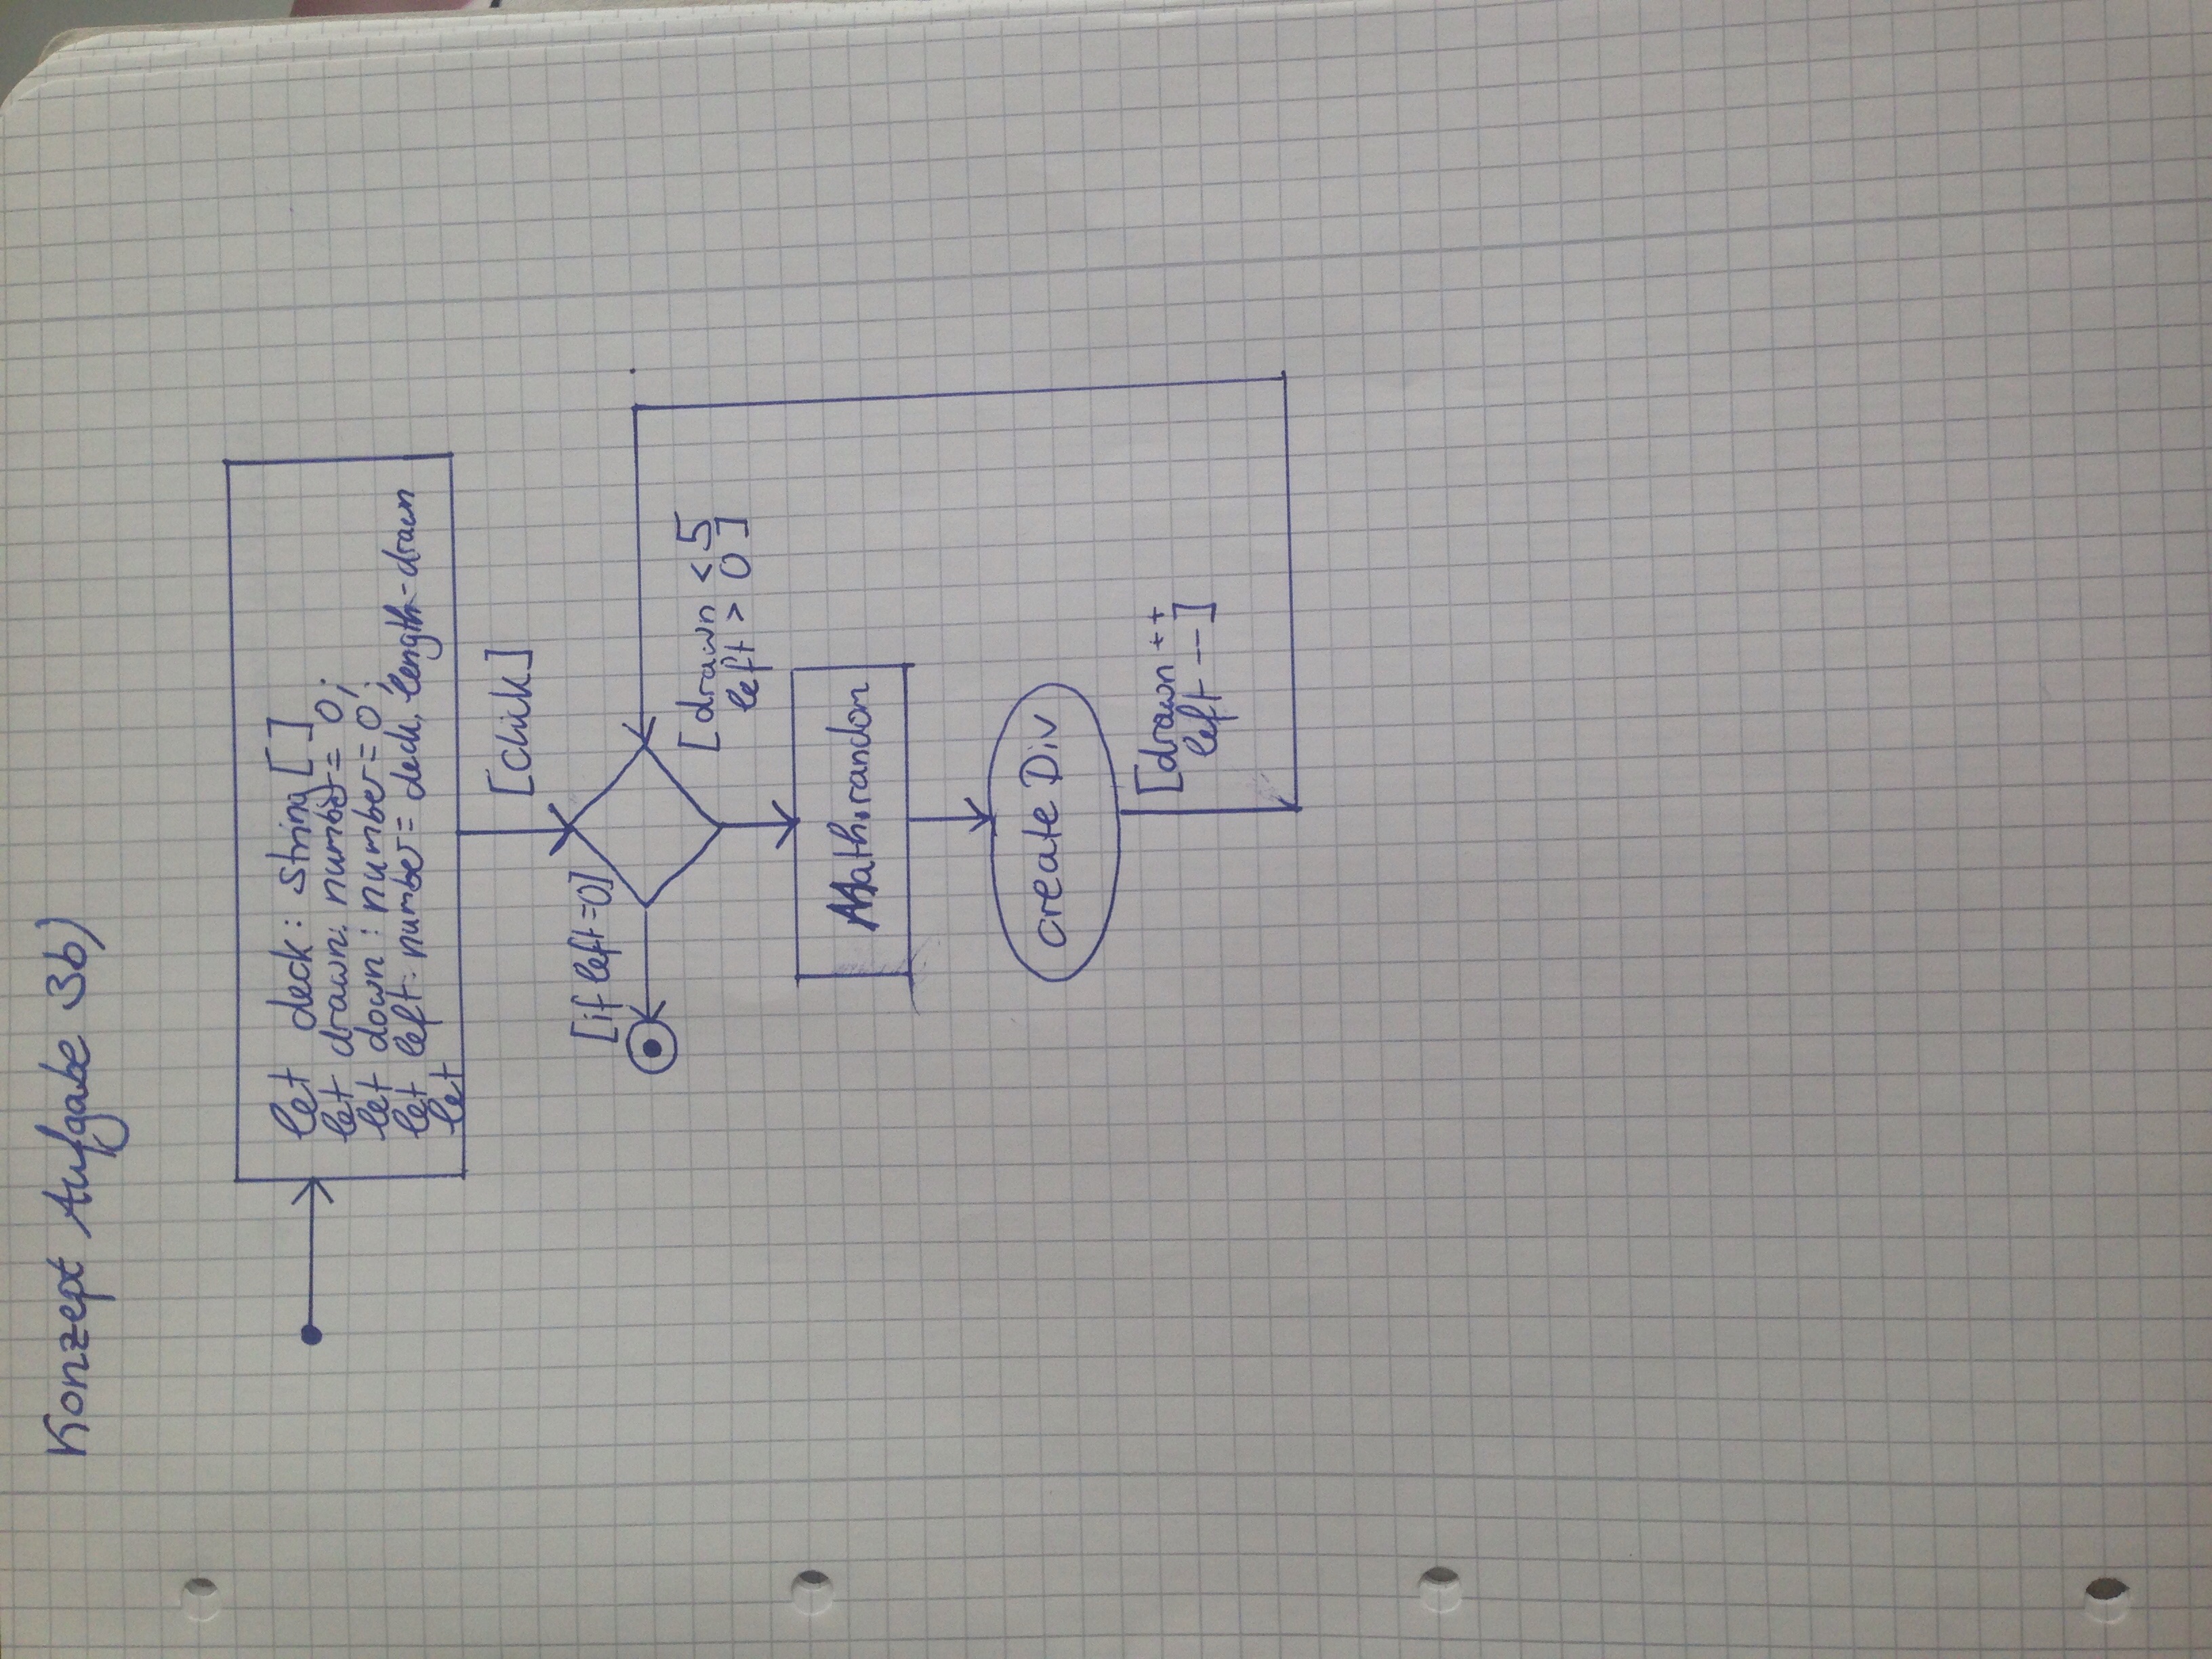 Konzept Aufgabe 3b)
let deck: string[]
let drawn: number = 0;
let down: number = 0;
let left: number = deck.length-drawn
let
[click]
[if left=0]
[drawn < 5
left > 0]
Math.random
create Div
[drawn ++
left --]